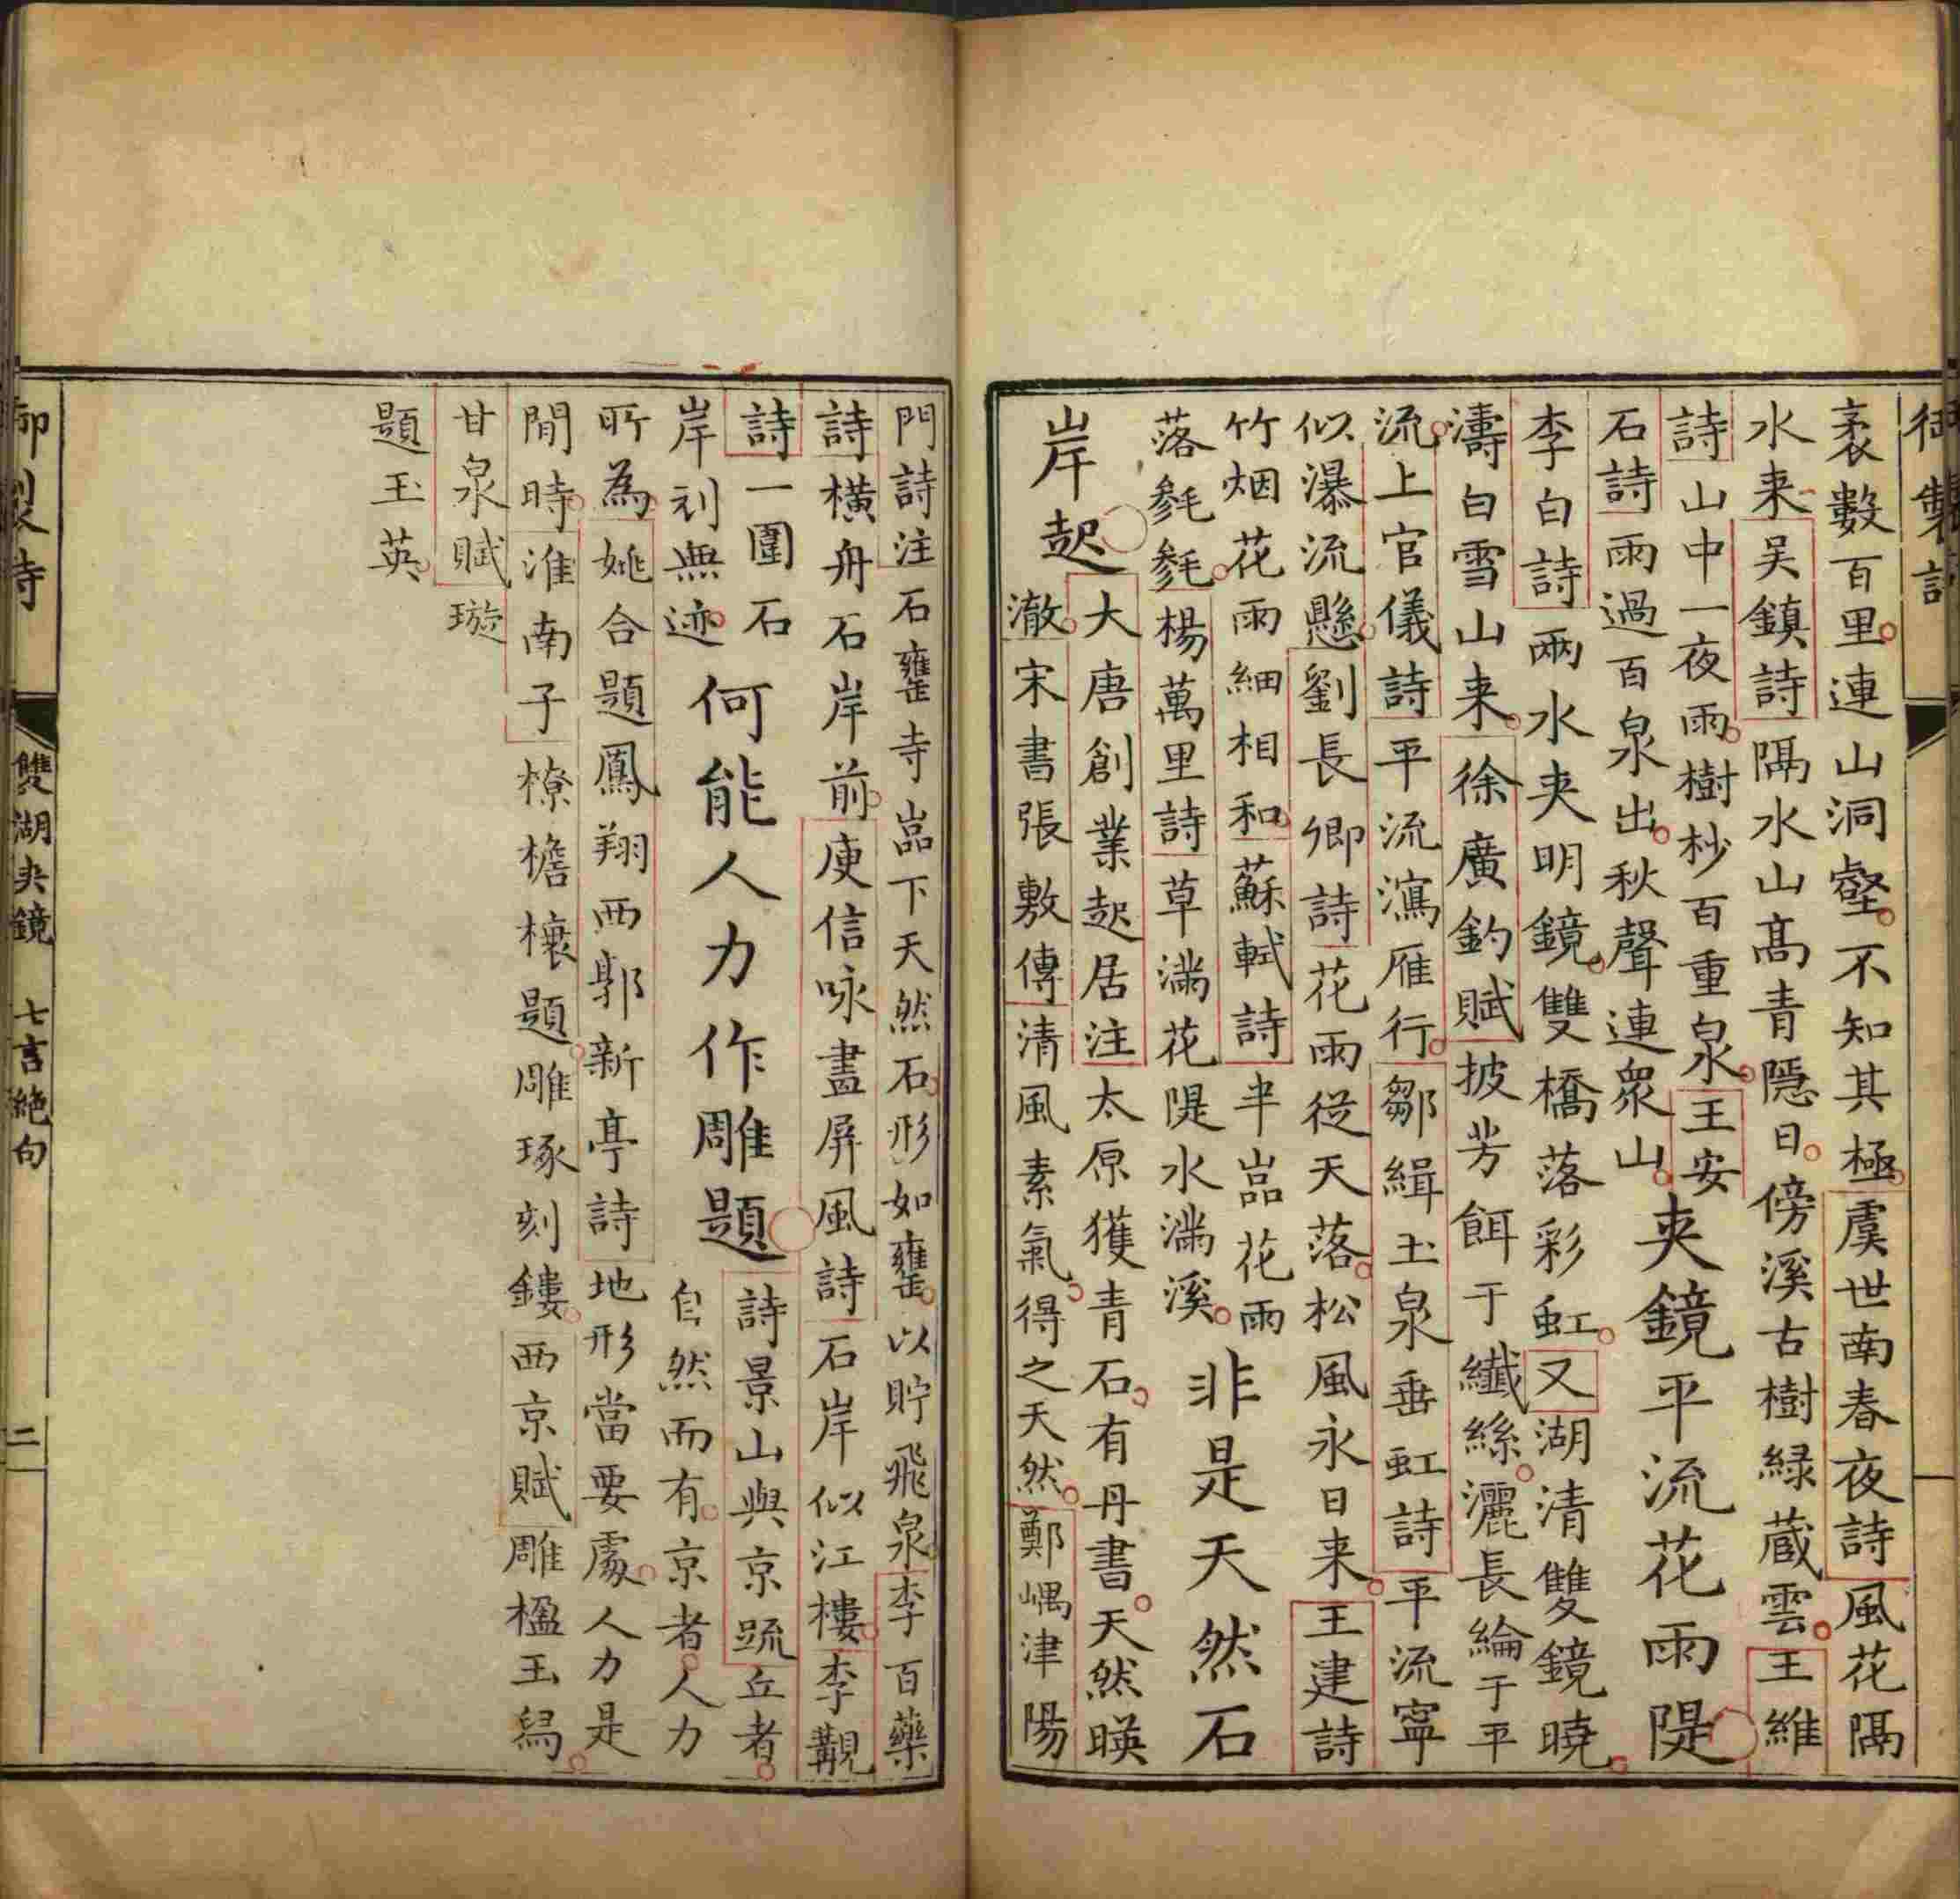 御製詩
袤數百里連山洞壑不知其極虞世南春夜詩風花隔
水来吴鎮詩隔水山髙青隱日傍溪古樹緑藏雲王維
詩山中一夜雨樹杪百重泉王安
石詩雨過百泉出秋聲連衆山
夾鏡平流花雨隄
李白詩兩水夾明鏡雙橋落彩虹又湖清雙鏡曉
濤白雪山来徐廣釣賦披芳餌于纖絲灑長綸于平
流上官儀詩平流瀉雁行鄒緝玉泉垂虹詩平流寜
似瀑流懸劉長卿詩花雨從天落松風永日来王建詩
竹烟花雨細相和蘇軾詩半嵓花雨
落毿毿楊萬里詩草滿花隄水滿溪
非是天然石
岸起
大唐創業起居注太原獲青石有丹書天然暎
澈宋書張敷傳清風素氣得之天然鄭嵎津陽
門詩注石甕寺嵓下天然石形如甕以貯飛泉李百藥
詩橫舟石岸前庾信咏畫屏風詩石岸似江樓李觀
詩一圍石
岸刹無迹
何能人力作雕題
詩景山與京疏丘者
自然而有京者人力
所為姚合題鳳翔西郭新亭詩地形當要處人力是
閒時淮南子橑檐榱題雕琢刻鏤西京賦雕楹玉舄
甘泉賦璇
題玉英
御製詩
雙湖夾鏡 七言絶句
二